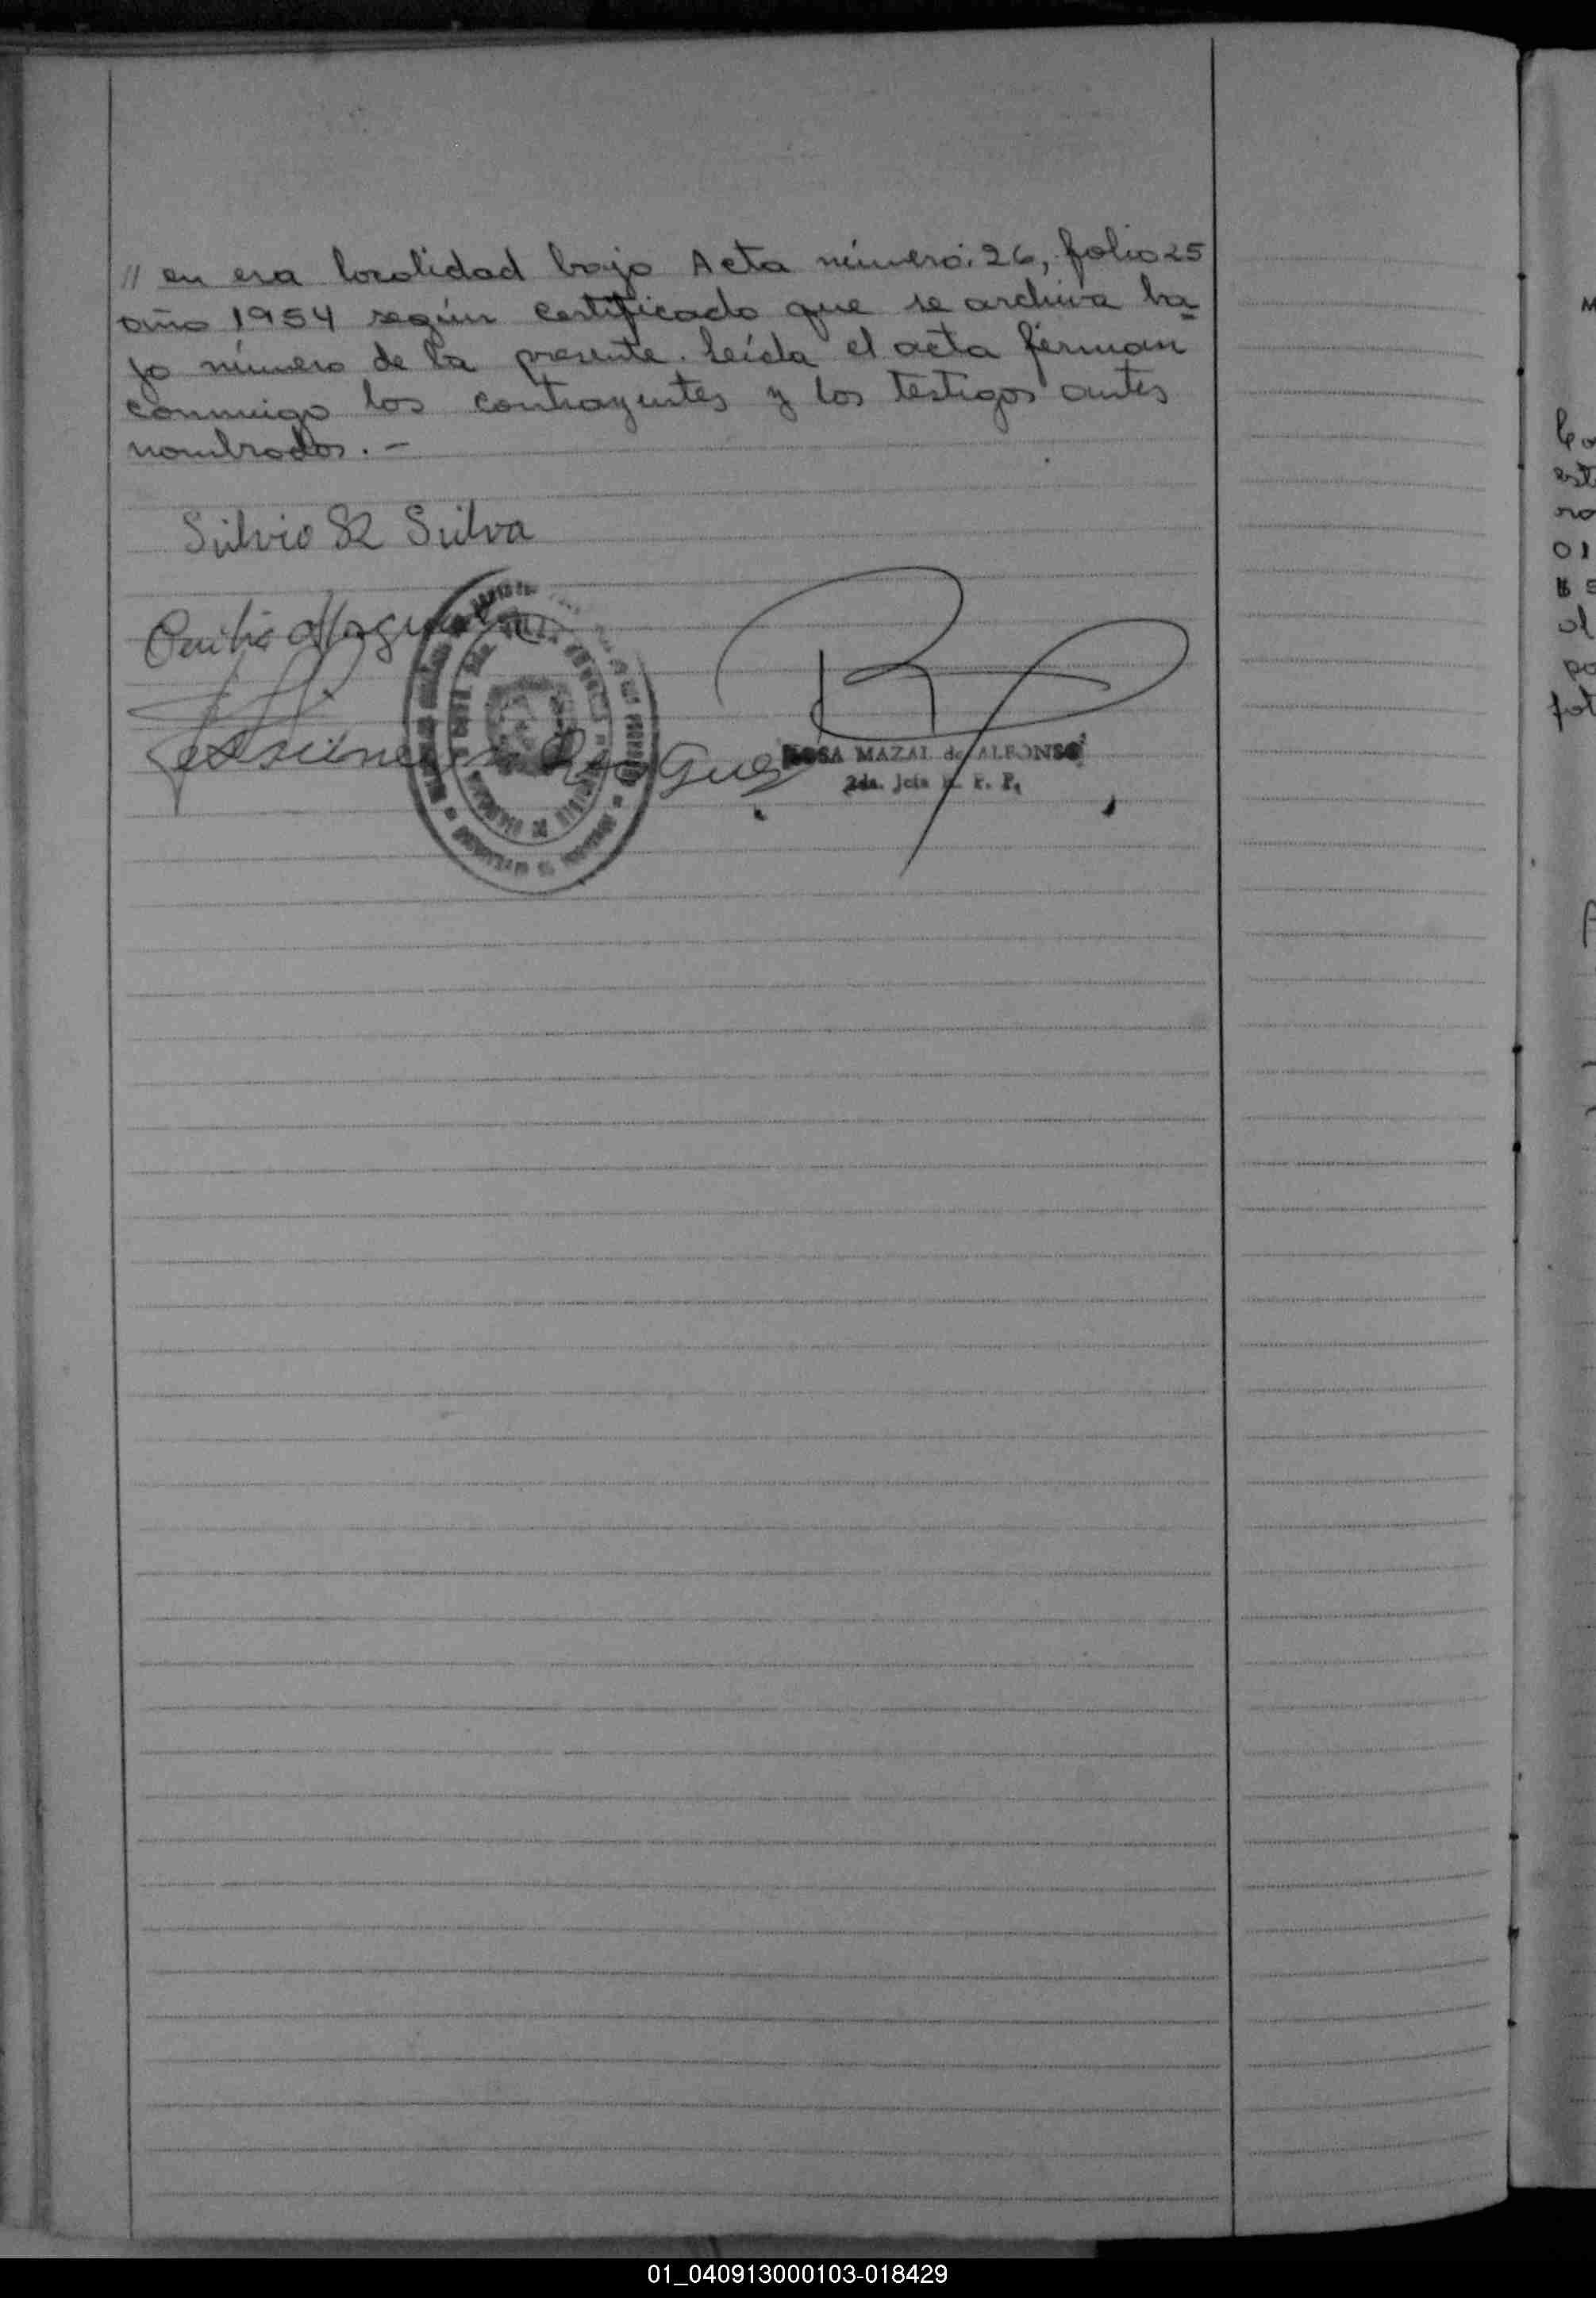 // en esa localidad bajo Acta número: 26, folio 25
año 1954 según certificado que se archiva ba=
jo número de la presente. Leída el acta firman
conmigo los contrayentes y los testigos antes
nombrados. -
Silvio Silva
ROSA MAZAL de ALFONSO
2da. Jefa R. P. P.
01_040913000103-018429